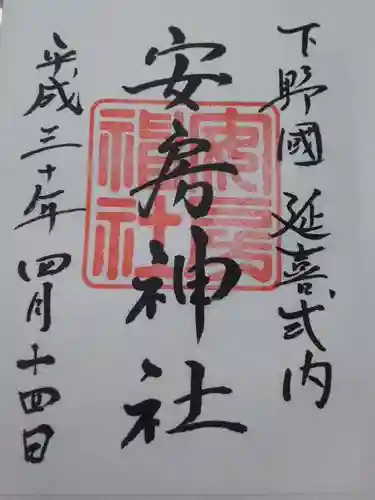 下野國 延喜式内
安房神社
平成三十年 四月十四日
安房
神社